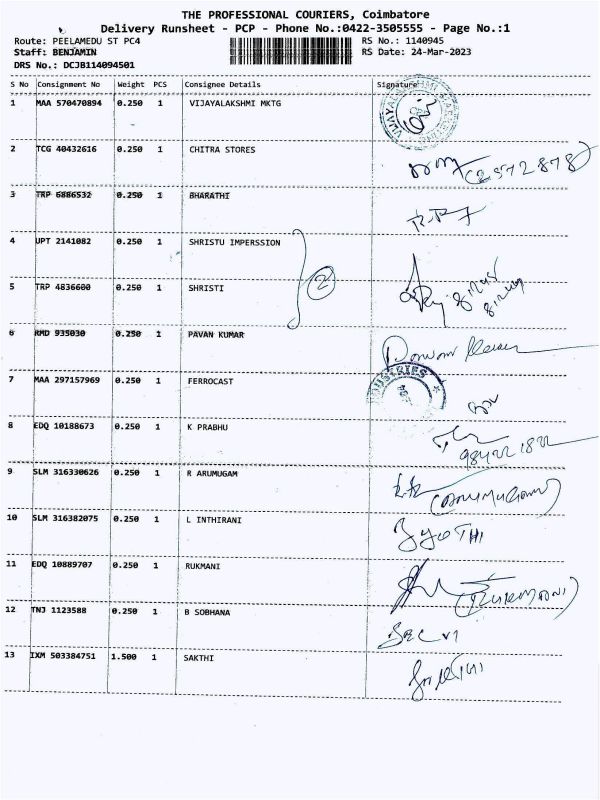 THE PROFESSIONAL COURIERS, Coimbatore
Delivery Runsheet - PCP - Phone No.:0422-3505555 - Page No.:1
Route: PEELAMEDU ST PC4 RS No.: 1140945
Staff: BENJAMIN RS Date: 24-Mar-2023
DRS No.: DCJB114094501
S No Consignment No Weight PCS Consignee Details Signature
1 MAA 570470894 0.250 1 VIJAYALAKSHMI MKTG
2 TCG 40432616 0.250 1 CHITRA STORES
3 TRP 6886532 0.250 1 BHARATHI
4 UPT 2141082 0.250 1 SHRISTU IMPERSSION
2
5 TRP 4836600 0.250 1 SHRISTI
6 RMD 935030 0.250 1 PAVAN KUMAR
7 MAA 297157969 0.250 1 FERROCAST
8 EDQ 10188673 0.250 1 K PRABHU
9 SLM 316330626 0.250 1 R ARUMUGAM
10 SLM 316382075 0.250 1 L INTHIRANI
11 EDQ 10889707 0.250 1 RUKMANI
12 TNJ 1123588 0.250 1 B SOBHANA
13 IXM 503384751 1.500 1 SAKTHI